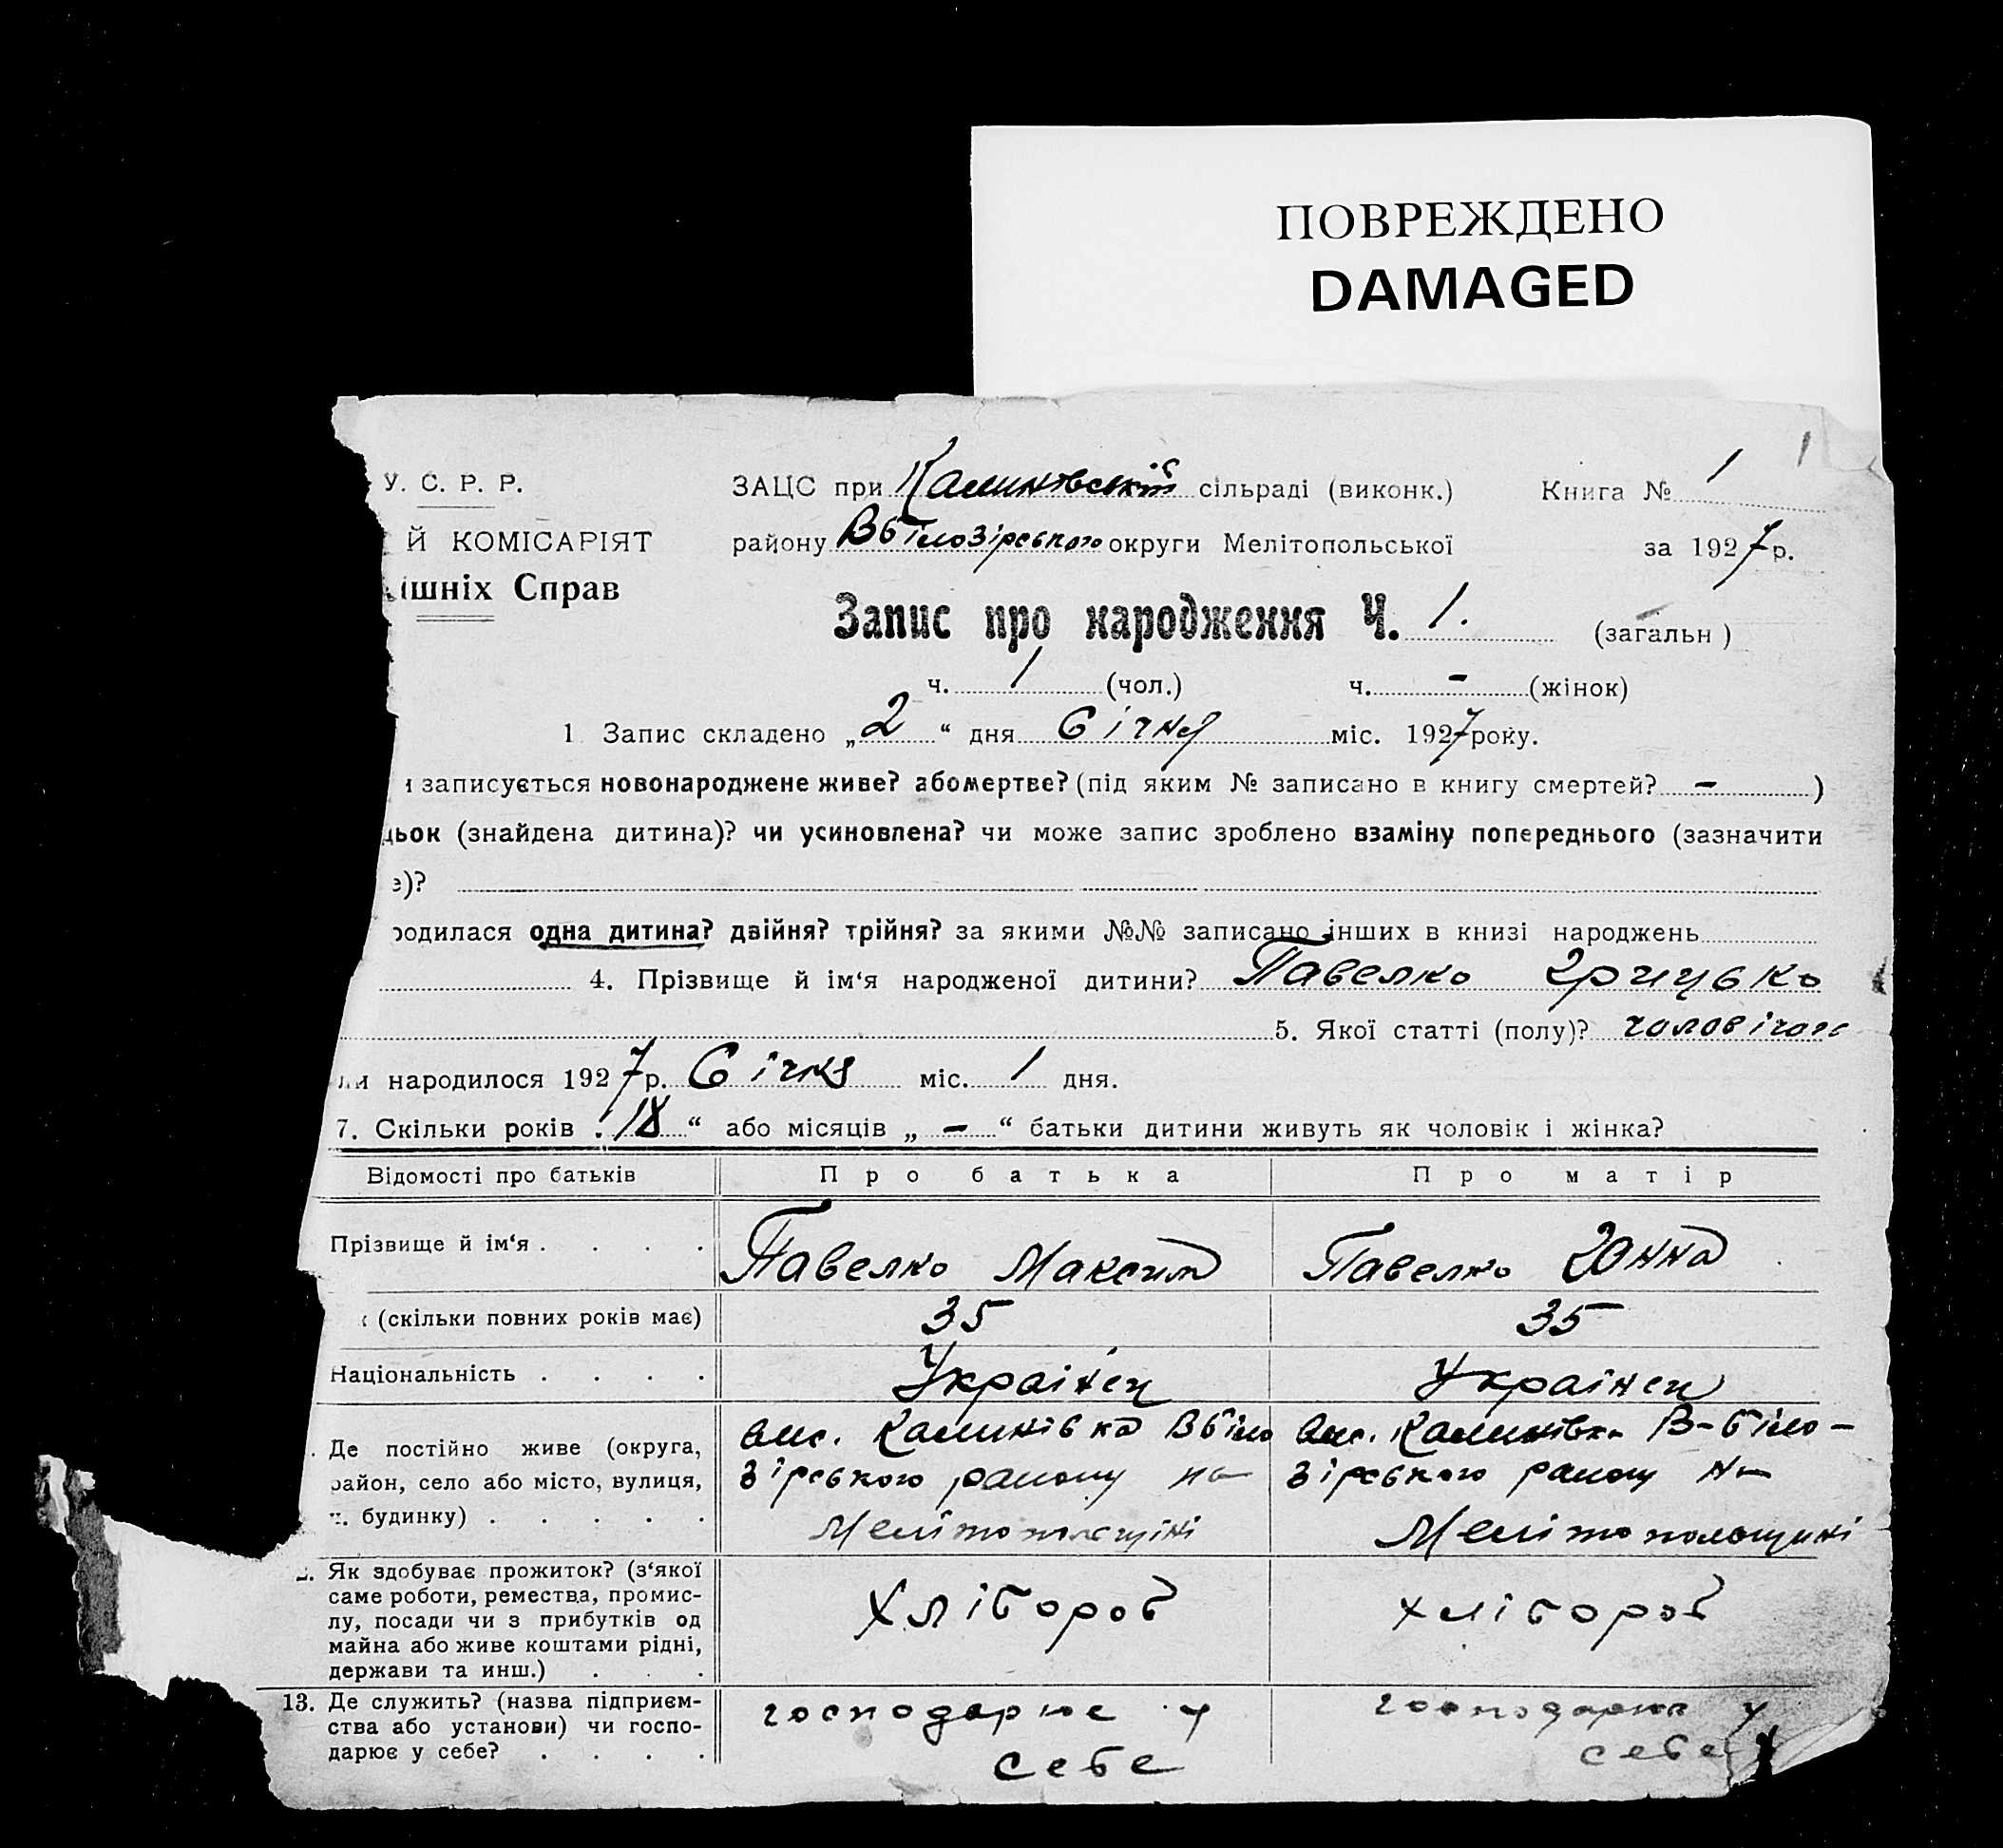 ПОВРЕЖДЕНО
DAMAGED
1
У. С. Р. Р.
ЗАЦС при Калинівській сільраді (виконк.)
Книга № 1
Й КОМІСАРІЯТ
району Вбілозірського округи Мелітопольської
за 1927 р.
ішніх Справ
Запис про народження Ч. 1. (загальн )
ч. 1 (чол.) ч. - (жінок)
1 Запис складено „2“ дня Січня міс. 1927 року.
и записується новонароджене живе? або мертве? (під яким № записано в книгу смертей? - )
дьок (знайдена дитина)? чи усиновлена? чи може запис зроблено взаміну попереднього (зазначити
е)?
родилася одна дитина? двійня? трійня? за якими №№ записано інших в книзі народжень
4. Прізвище й ім‘я народженої дитини? Павелко Грицько
5. Якої статті (полу)? чоловічого
ли народилося 1927 р. Січня міс. 1 дня.
7. Скільки років „18“ або місяців „-“ батьки дитини живуть як чоловік і жінка?
Відомості про батьків
Про батька
Про матір
Прізвище й ім‘я . . . .
Павелко Максим
Павелко Ганна
(скільки повних років має)
35
35
Національність . . . .
Українец
Українец
Де постійно живе (округа,
район, село або місто, вулиця,
ч. будинку) . . . . .
вис. Калинівка Вбіло
зірського району на
Мелітопольщіні
вис. Калинівка В-біло-
зірського району на
Мелітопольщині
Як здобуває прожиток? (з‘якої
саме роботи, ремества, промис-
лу, посади чи з прибутків од
майна або живе коштами рідні,
держави та инш.) . . .
Хлібороб
хлібороб
13. Де служить? (назва підприєм-
ства або установи) чи госпо-
дарює у себе? . . . .
господарює у
себе
господарює у
себе